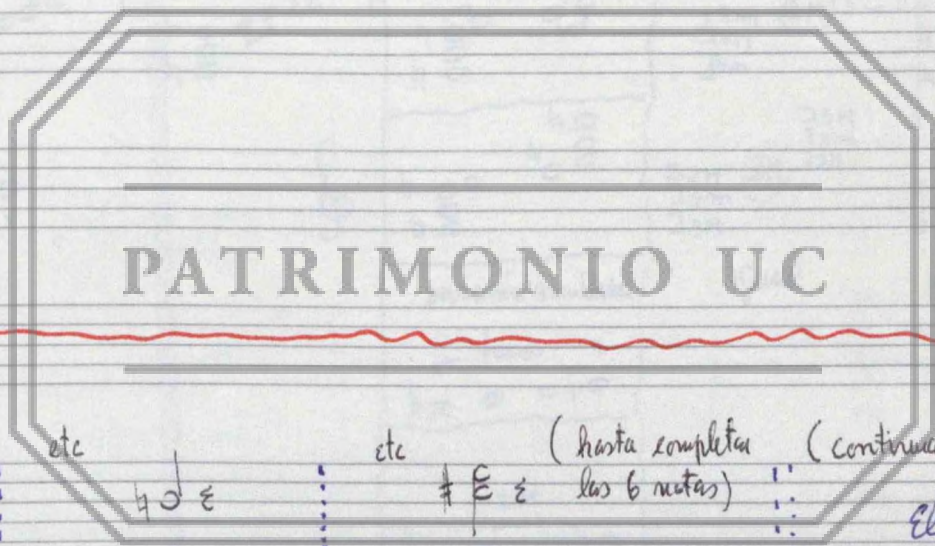 PATRIMONIO UC
etc
etc
(hasta completar
las 6 notas)